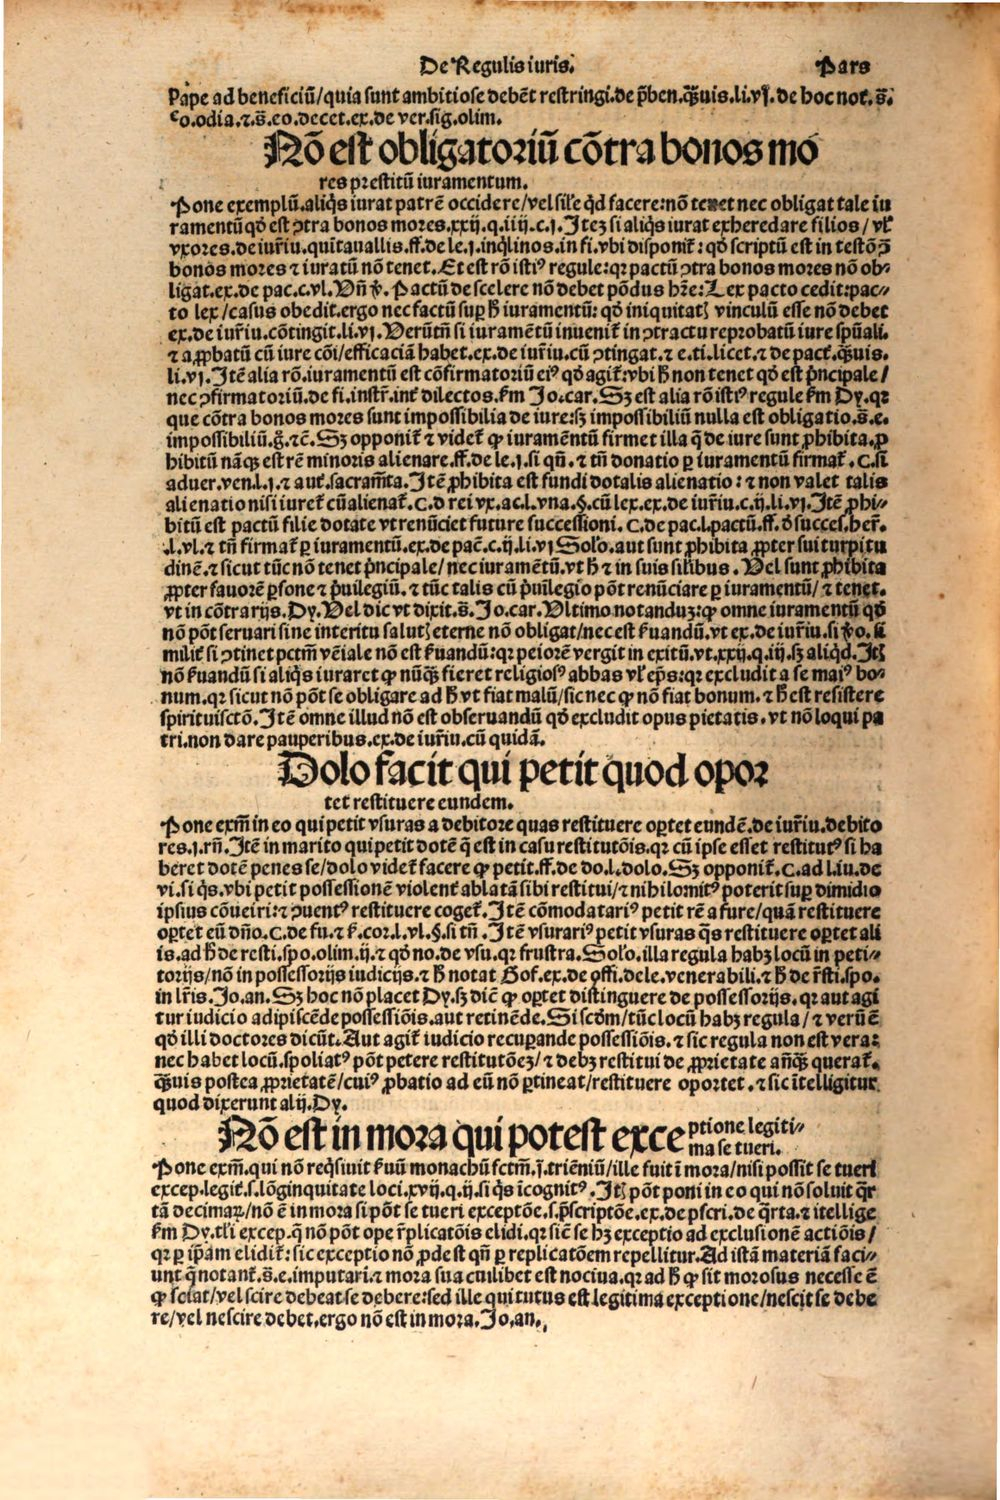 De Regulis iuris.
Pars
Pape ad beneficiũ/quia sunt ambitiose debẽt restringi.de p̃ben.q̃uis.li.vj.de hoc not.s̃.
eo.odia.⁊.s̃.eo.decet.ex.de ver.sig.olim.
Nõ est obligatoriũ cõtra bonos mo
res prestitũ iuramentum.
Pone exemplũ.aliq̃s iurat patrẽ occidere/vel sil̃e qd̃ facere:nõ tenet nec obligat tale iu
ramentũ qd̃ est ꝯtra bonos mores.xxij.q.iiij.c.j.Itẽ si aliq̃s iurat exheredare filios/vl̃
vxores.de iur̃iu.quĩtauallis.ff.de le.j.inq̃linos.in fi.vbi disponit̃:qd̃ scriptũ est in testõ ꝯ̃
bonos mores ⁊ iuratũ nõ tenet.Et est rõ istiꝰ regule:qꝛ pactũ ꝯtra bonos mores nõ ob-
ligat.ex.de pac.c.vl.Vñ v̾.Pactũ de scelere nõ debet põdus hr̃e:Lex pacto cedit:pac-
to lex/casus obedit.ergo nec factũ suꝑ h̃ iuramentũ:qd̃ iniquitatꝭ vinculũ esse nõ debet
ex.de iur̃iu.cõtingit.li.vj.Verũtñ si iuramẽtũ inuenit̃ in ꝯtractu reprobatũ iure sp̃uali.
⁊ a ꝓbatũ cũ iure cõi/efficaciã habet.ex.de iur̃iu.cũ ꝯtingat.⁊ e.ti.licet.⁊ de pact̃.q̃uis.
li.vj.Itẽ alia rõ.iuramentũ est cõfirmatoriũ eiꝰ qd̃ agit̃:vbi h̃ non tenet qd̃ est p̃ncipale/
nec ꝯfirmatoriũ.de fi.instr̃.int̃ dilectos.ẜm Jo.car.Sꝫ est alia rõ istiꝰ regule ẜm Dy.qꝛ
que cõtra bonos mores sunt impossibilia de iure:sꝫ impossibiliũ nulla est obligatio.s̃.e.
impossibiliũ.g̃.⁊c̃.Sꝫ opponit̃ ⁊ videt̃ ꝙ iuramẽtũ firmet illa q̃ de iure sunt ꝓhibita.ꝓ
hibitũ nãqꝫ est rẽ minoris alienare.ff.de le.j.si qñ.⁊ tñ donatio ꝑ iuramentũ firmat̃.C.si
aduer.ven.l.j.⁊ aut̃.sacram̃ta.Itẽ ꝓhibita est fundi dotalis alienatio:⁊ non valet talis
alienatio nisi iuret̃ cũ alienat̃.C.d rei vx.ac.l.vna.§.cũ lex.ex.de iur̃iu.c.ij.li.vj.Itẽ ꝓhi-
bitũ est pactũ filie dotate vt renũciet future successioni.C.de pac.l.pactũ.ff.ð succes.her̃.
.l.vl.⁊ tñ firmat̃ ꝑ iuramentũ.ex.de pac̃.c.ij.li.vj Solo.aut sunt ꝓhibita ꝓpter sui turpitu
dinẽ.⁊ sicut tũc nõ tenet p̃ncipale/nec iuramentũ.vt h̃ ⁊ in suis silibus.Vel sunt ꝓhibita
ꝓpter fauorẽ ꝑsone ⁊ p̃uilegiũ.⁊ tũc talis cũ p̃uilegio põt renũciare ꝑ iuramentũ/⁊ tenet.
vt in cõtrarijs.Dy.Vel dic vt dixit.s̃.Jo.car.Vltimo notanduꝫ:ꝙ omne iuramentũ qd̃
nõ põt seruari sine interitu salutꝭ eterne nõ obligat/nec est ẜuandũ.vt ex.de iur̃iu.si v̾o.si
milit̃ si ꝯtinet pctm̃ vẽiale nõ est ẜuandũ:qꝛ peiorẽ vergit in exitũ.vt.xxij.q.iij.sꝫ aliqd̃.Itꝭ
nõ ẜuandũ si aliq̃s iuraret ꝙ nũqꝫ fieret religiosꝰ abbas vl̃ ep̃s:qꝛ excludit a se maiꝰ bo-
num.qꝛ sicut nõ põt se obligare ad h̃ vt fiat malũ/sic nec ꝙ nõ fiat bonum.⁊ h̃ est resistere
spirituisctõ.Itẽ omne illud nõ est obseruandũ qd̃ excludit opus pietatis.vt nõ loqui pa
tri.non dare pauperibus.ex.de iur̃iu.cũ quidã.
Dolo facit qui petit quod opoꝛ
tet restituere eundem.
Pone exm̃ in eo qui petit vsuras a debitore quas restituere oꝑtet eundẽ.de iur̃iu.debito
res.j.rñ.Itẽ in marito qui petit dotẽ q̃ est in casu restitutõis.qꝛ cũ ipse esset restitutꝰ si ha
beret dotẽ penes se/dolo videt̃ facere ꝙ petit.ff.de do.l.dolo.Sꝫ opponit̃.C.ad l.iu.de
vi.si q̃s.vbi petit possessionẽ violent̃ ablatã sibi restitui/⁊ nihilomitꝰ poterit suꝑ dimidio
ipsius cõueiri:⁊ ꝯuentꝰ restituere coget̃.Itẽ cõmodatariꝰ petit rẽ a fure/quã restituere
oꝑtet eũ dño.C.de fu.⁊ ẜ.cor.l.vl.§.si tñ.Itẽ vsurariꝰ petit vsuras q̃s restituere oꝑtet ali
is.ad h̃ de resti.spo.olim.ij.⁊ qd̃ no.de vsu.qꝛ frustra.Solo.illa regula habꝫ locũ in peti-
torijs/nõ in possessorijs iudicijs.⁊ h̃ notat Gof.ex.de offi.dele.venerabili.⁊ h̃ de r̃sti.spo.
in lr̃is.Jo.an.Sꝫ hoc nõ placet Dy.sꝫ dic̃ ꝙ oꝑtet distinguere de possessorijs.qꝛ aut agi
tur iudicio adipiscẽde possessiõis.aut retinẽde.Si scðm/tũc locũ habꝫ regula/⁊ verũ ẽ
qd̃ illi doctores dicũt.Aut agit̃ iudicio recuꝑande possessiõis.⁊ sic regula non est vera:
nec habet locũ.spoliatꝰ põt petere restitutõeꝫ/⁊ debꝫ restitui de ꝓprietate añqꝫ querat̃.
q̃uis postea ꝓprietatẽ/cuiꝰ ꝓbatio ad eũ nõ ꝑtineat/restituere oportet.⁊ sic ĩtelligitur
quod dixerunt alij.Dy.
Nõ est in mora qui potest exce
ptione legiti-
ma se tueri.
Pone exm̃.qui nõ req̃siuit ẜuũ monachũ fctm̃.j̃.triẽniũ/ille fuit ĩ mora/nisi possit se tueri
excep.legit̃.s.lõginquitate loci.xvij.q.ij.si q̃s ĩcognitꝰ.Itꝭ põt poni in eo qui nõ soluit q̃r
tã decimaꝝ/nõ ẽ in mora si põt se tueri exceptõe.s.p̃scriptõe.ex.de p̃scri.de q̃rta.⁊ itellige
ẜm Dy.tl̃i excep.q̃ nõ põt ope r̃plicatõis elidi.qꝛ si ẽ se hꝫ exceptio ad exclusionẽ actiõis/
qꝛ ꝑ ip̃am elidit̃:sic exceptio nõ ꝓdest qñ ꝑ replicatõem repellitur.Ad istã materiã faci-
unt q̃ notant̃.s̃.e.imputari.⁊ mora sua cuilibet est nociua.qꝛ ad h̃ ꝙ sit morosus necesse ẽ
ꝙ sciat/vel scire debeat se debere:sed ille qui tutus est legitima exceptione/nescit se debe
re/vel nescire debet.ergo nõ est in mora.Jo.an.